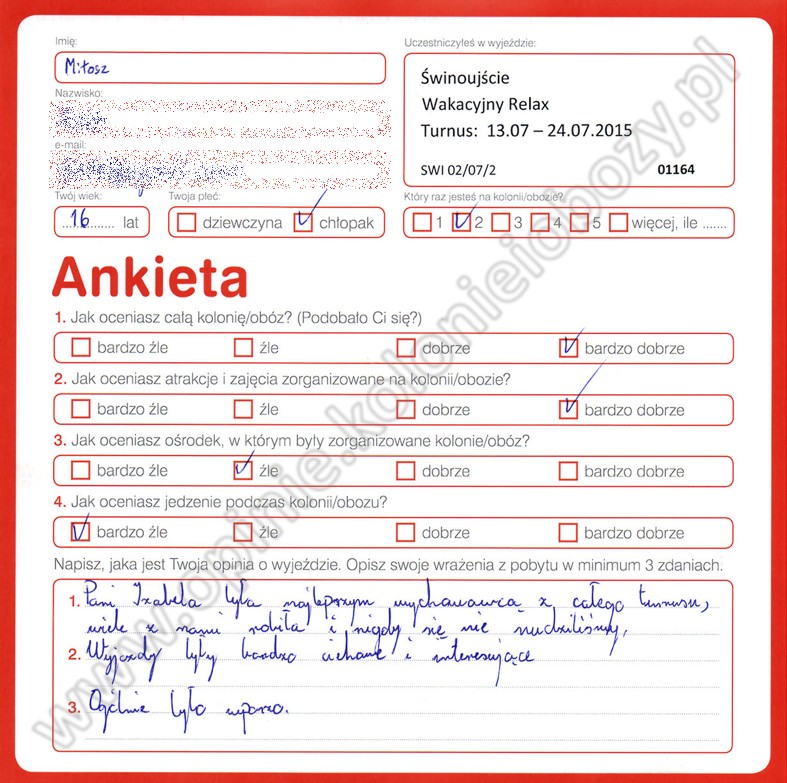 Imię:
Miłosz
Nazwisko:
e-mail:
Twój wiek:
16 lat
Twoja płeć:
dziewczyna chłopak
Uczestniczyłeś w wyjeździe:
Świnoujście
Wakacyjny Relax
Turnus: 13.07 – 24.07.2015
SWI 02/07/2 01164
Który raz jesteś na kolonii/obozie?
1 2 3 4 5 więcej, ile .......
Ankieta
1. Jak oceniasz całą kolonię/obóz? (Podobało Ci się?)
bardzo źle źle dobrze bardzo dobrze
2. Jak oceniasz atrakcje i zajęcia zorganizowane na kolonii/obozie?
bardzo źle źle dobrze bardzo dobrze
3. Jak oceniasz ośrodek, w którym były zorganizowane kolonie/obóz?
bardzo źle źle dobrze bardzo dobrze
4. Jak oceniasz jedzenie podczas kolonii/obozu?
bardzo źle źle dobrze bardzo dobrze
Napisz, jaka jest Twoja opinia o wyjeździe. Opisz swoje wrażenia z pobytu w minimum 3 zdaniach.
1. Pani Izabela była najlepszym wychowawcą z całego turnusu,
wiele z nami robiła i nigdy się nie nudziliśmy,
2. Wyjazdy były bardzo ciekawe i interesujące
3. Ogólnie było wporzo.
www.opinie.kolonieiobozy.pl